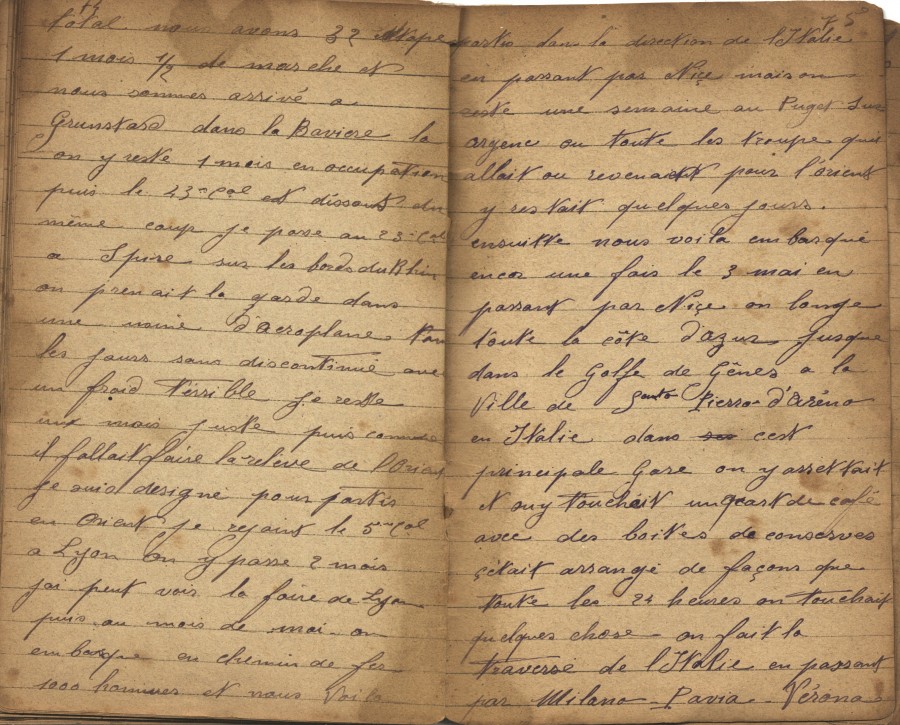 total nous avons 32 étape
1 mois 1/2 de marche et
nous sommes arrivé a
Grunstard dans la Baviere la
on y reste 1 mois en occupation
puis le 43me Col est dissout du
même coup je passe au 23me Col
a Spire sur les bords du Rhin
on prenait la garde dans
une usine d'aeroplane tou
les jours sans discontinué avec
un froid térrible je reste
un mois juste puis comme
il fallait faire la relève de l'Orient
je suis designe pour partir
en Orient je rejoint le 5me Col
a Lyon on y passe 2 mois
jai peut voir la foire de Lyon
puis au mois de mai on
embarque en chemin de fer
1000 hommes et nous voila
75
partis dans la direction de l'Italie
en passant par Niçe mais on
reste une semaine au Puget Sur
argenc ou toute les troupe qui
allait ou revenait pour l'orient
y restait quelques jours.
ensuitte nous voila embarqué
encor une fois le 3 mai en
passant par Niçe on longe
toute la côte d'azur jusque
dans le Golfe de Gênes a la
Ville de Santo Pierro d'aréno
en Italie dans cest
principale Gare on y arrettait
et on y touchait un qart de café
avec des boites de conserves
çétait arrangé de façons que
toute les 24 heures on touchait
quelques chose - on fait la
traversé de l'Italie en passant
par Milano - Pavia - Vérona